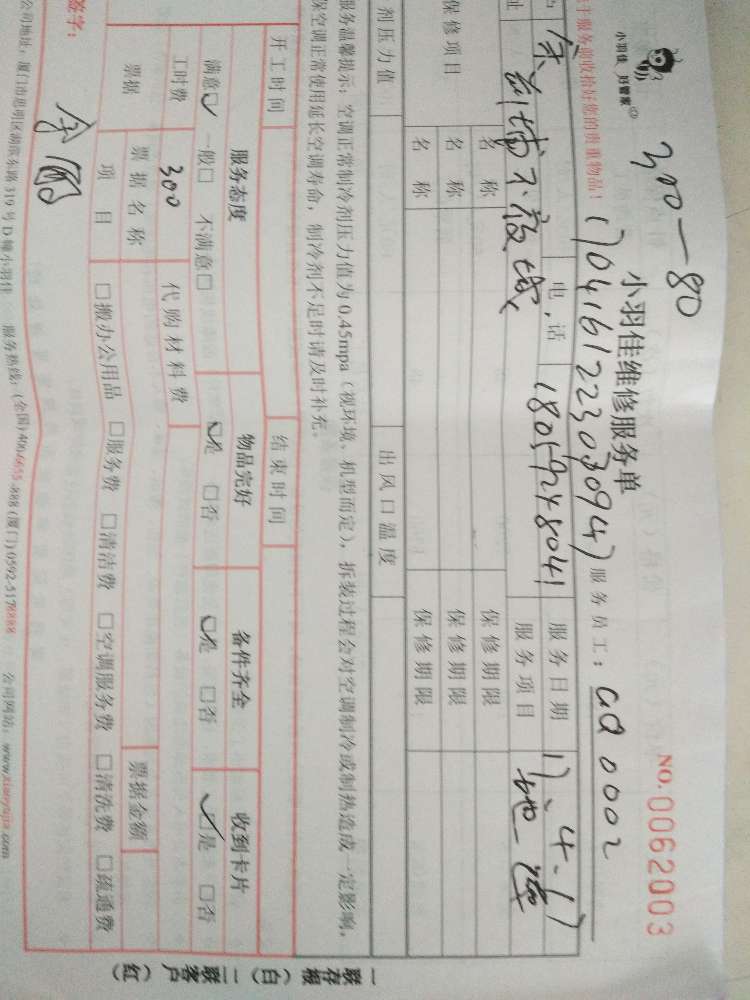 小羽佳 好管家
300-80
小羽佳维修服务单
NO.0062003
主服务前收拾好您的贵重物品！
服务员工：
0002
电话
18059248041
服务日期
17.4.17
址
服务项目
保修项目
名称
保修期限
名称
保修期限
名称
保修期限
剂压力值
出风口温度
服务温馨提示：空调正常制冷剂压力值为0.45mpa（视环境、机型而定），拆装过程会对空调制冷或制热造成一定影响，
保空调正常使用延长空调寿命，制冷剂不足时请及时补充。
开工时间
结束时间
服务态度
物品完好
备件齐全
收到卡片
满意□ 一般□ 不满意□
□是 □否
□是 □否
□是 □否
工时费
300
代购材料费
票据
票据名称
票据金额
项目
□搬办公用品 □服务费 □清洁费 □空调服务费 □清洗费 □疏通费
签字：
公司地址：厦门市思明区湖滨东路319号D幢小羽佳 服务热线：(全国)400-6655-888 (厦门)0592-5178888 公司网站：www.xiaoyujia.com
一联存根（白）二联客户（红）